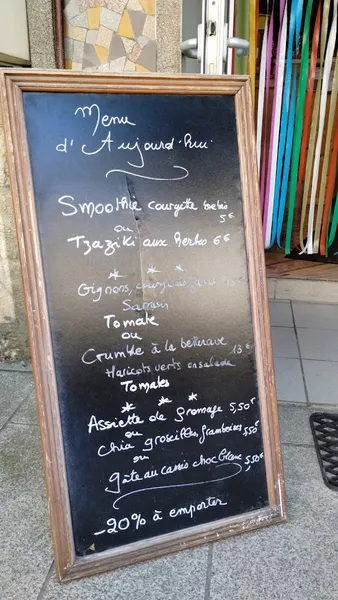 Menu
d'Aujourd'hui
Smoothie courgette
5€
ou
Tzaziki aux herbes 6€
* * *
Sarrasin
Tomate
ou
Crumble à la betterave
Haricots verts en salade 13€
Tomates
* * *
Assiette de fromage 5,50€
ou
Chia groseilles, framboises 5,50€
ou
gâteau cassis choc blanc 5,50€
-20% à emporter